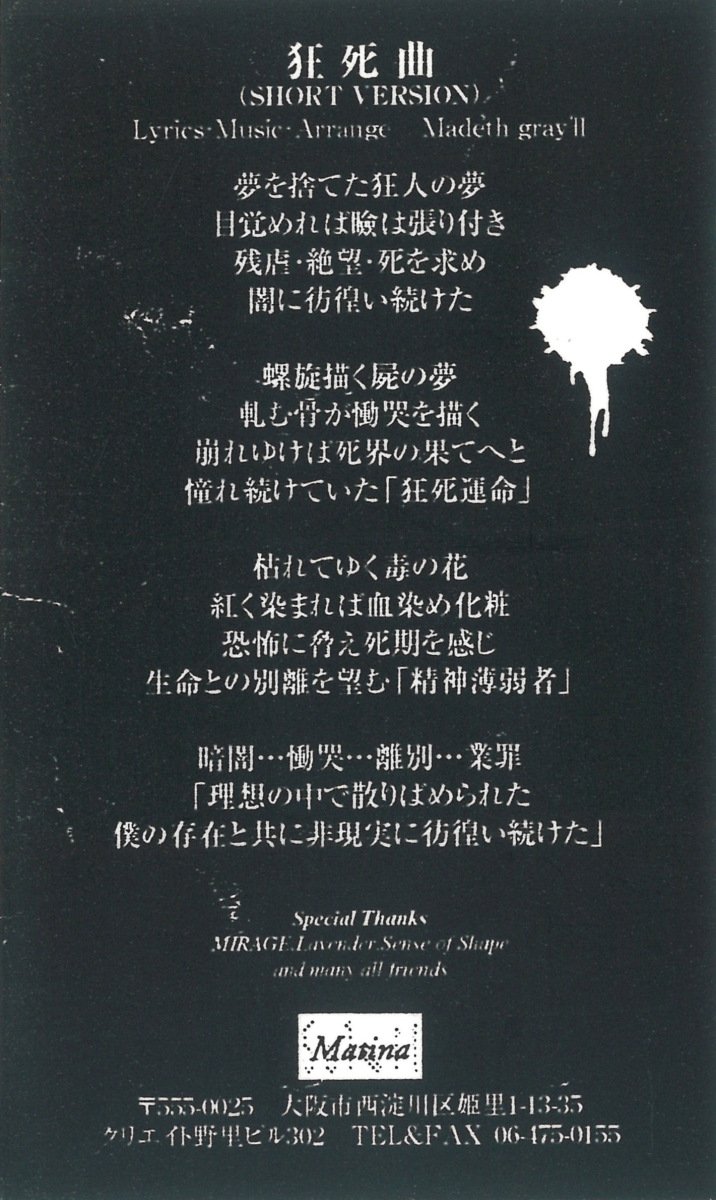 狂死曲
(SHORT VERSION)
Lyrics·Music·Arrange Madeth gray'll
夢を捨てた狂人の夢
目覚めれば瞼は張り付き
残虐·絶望·死を求め
闇に彷徨い続けた
螺旋描く屍の夢
軋む骨が慟哭を描く
崩れゆけば死界の果てへと
憧れ続けていた「狂死運命」
枯れてゆく毒の花
紅く染まれば血染め化粧
恐怖に脅え死期を感じ
生命との別離を望む「精神薄弱者」
暗闇…慟哭…離別…業罪
「理想の中で散りばめられた
僕の存在と共に非現実に彷徨い続けた」
Special Thanks
MIRAGE.Lavender.Sense of Shape
and many all friends
Matina
〒555-0025 大阪市西淀川区姫里1-13-35
クリエイト野里ビル302 TEL&FAX 06-475-0155